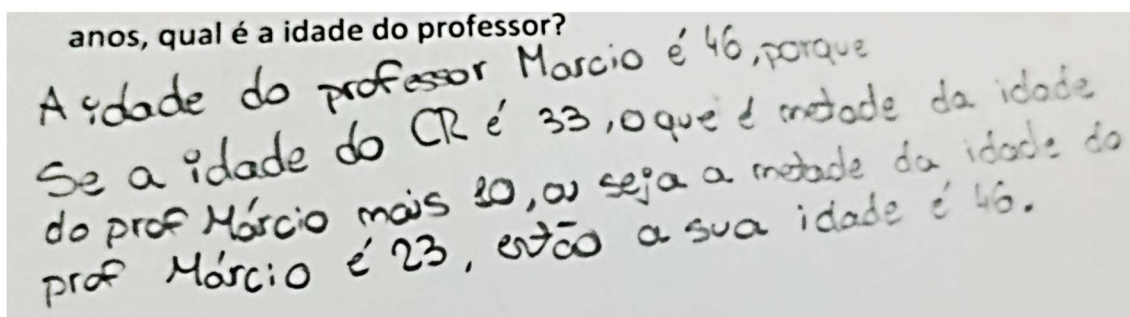 anos, qual é a idade do professor?
A idade do professor Marcio é 46, porque
Se a idade do CR é 33, o que é metade da idade
do prof Márcio mais 10, ou seja a metade da idade do
prof Márcio é 23, então a sua idade é 46.